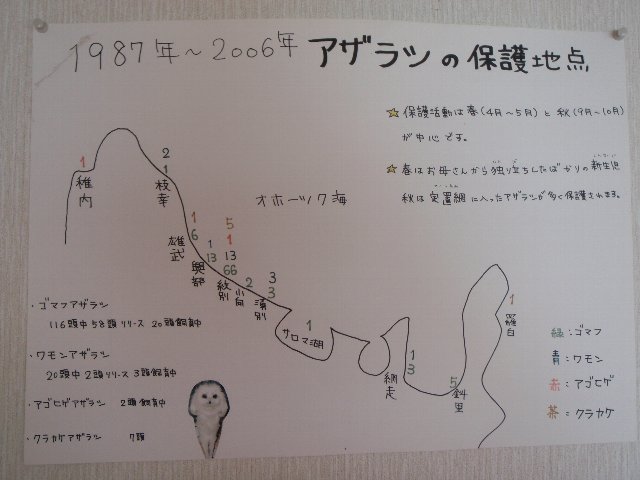 1987年～2006年 アザラシの保護地点
☆ 保護活動は春(4月～5月)と秋(9月～10月)
が中心です。
☆ 春はお母さんから独り立ちしたばかりの新生児
秋は定置網に入ったアザラシが多く保護されます。
オホーツク海
1
稚内
2
1
枝幸
1
6
雄武
1
13
興部
5
1
13
66
紋別
小向
2
3
3
湧別
1
サロマ湖
網走
1
3
5
斜里
1
羅臼
・ゴマフアザラシ
116頭中58頭リリース 20頭飼育中
・ワモンアザラシ
20頭中2頭リリース 3頭飼育中
・アゴヒゲアザラシ 2頭飼育中
・クラカケアザラシ 7頭
緑：ゴマフ
青：ワモン
赤：アゴヒゲ
茶：クラカケ